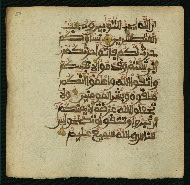 ان الله يحب التوبين ويحب
المتطهرين نساؤكم
حرث لكم فاتوا حرثكم
انى شئتم وقدموا لانفسكم
واتقوا الله واعلموا انكم
ملقوه وبشر المومنين ولا
تجعلوا الله عرضة لايمنكم
ان تبروا وتتقوا وتصلحوا بين
الناس والله سميع عليم